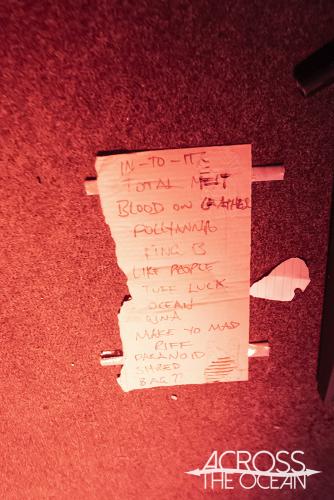 IN-TO-IT
TOTAL MELT
BLOOD ON LEATHER
POLLYANNA
PING B
LIKE PEOPLE
TUFF LUCK
OCEAN
GINA
MAKE YO MAD
RIFF
PARANOID
SHRED
BAG??
ACROSS
THE OCEAN